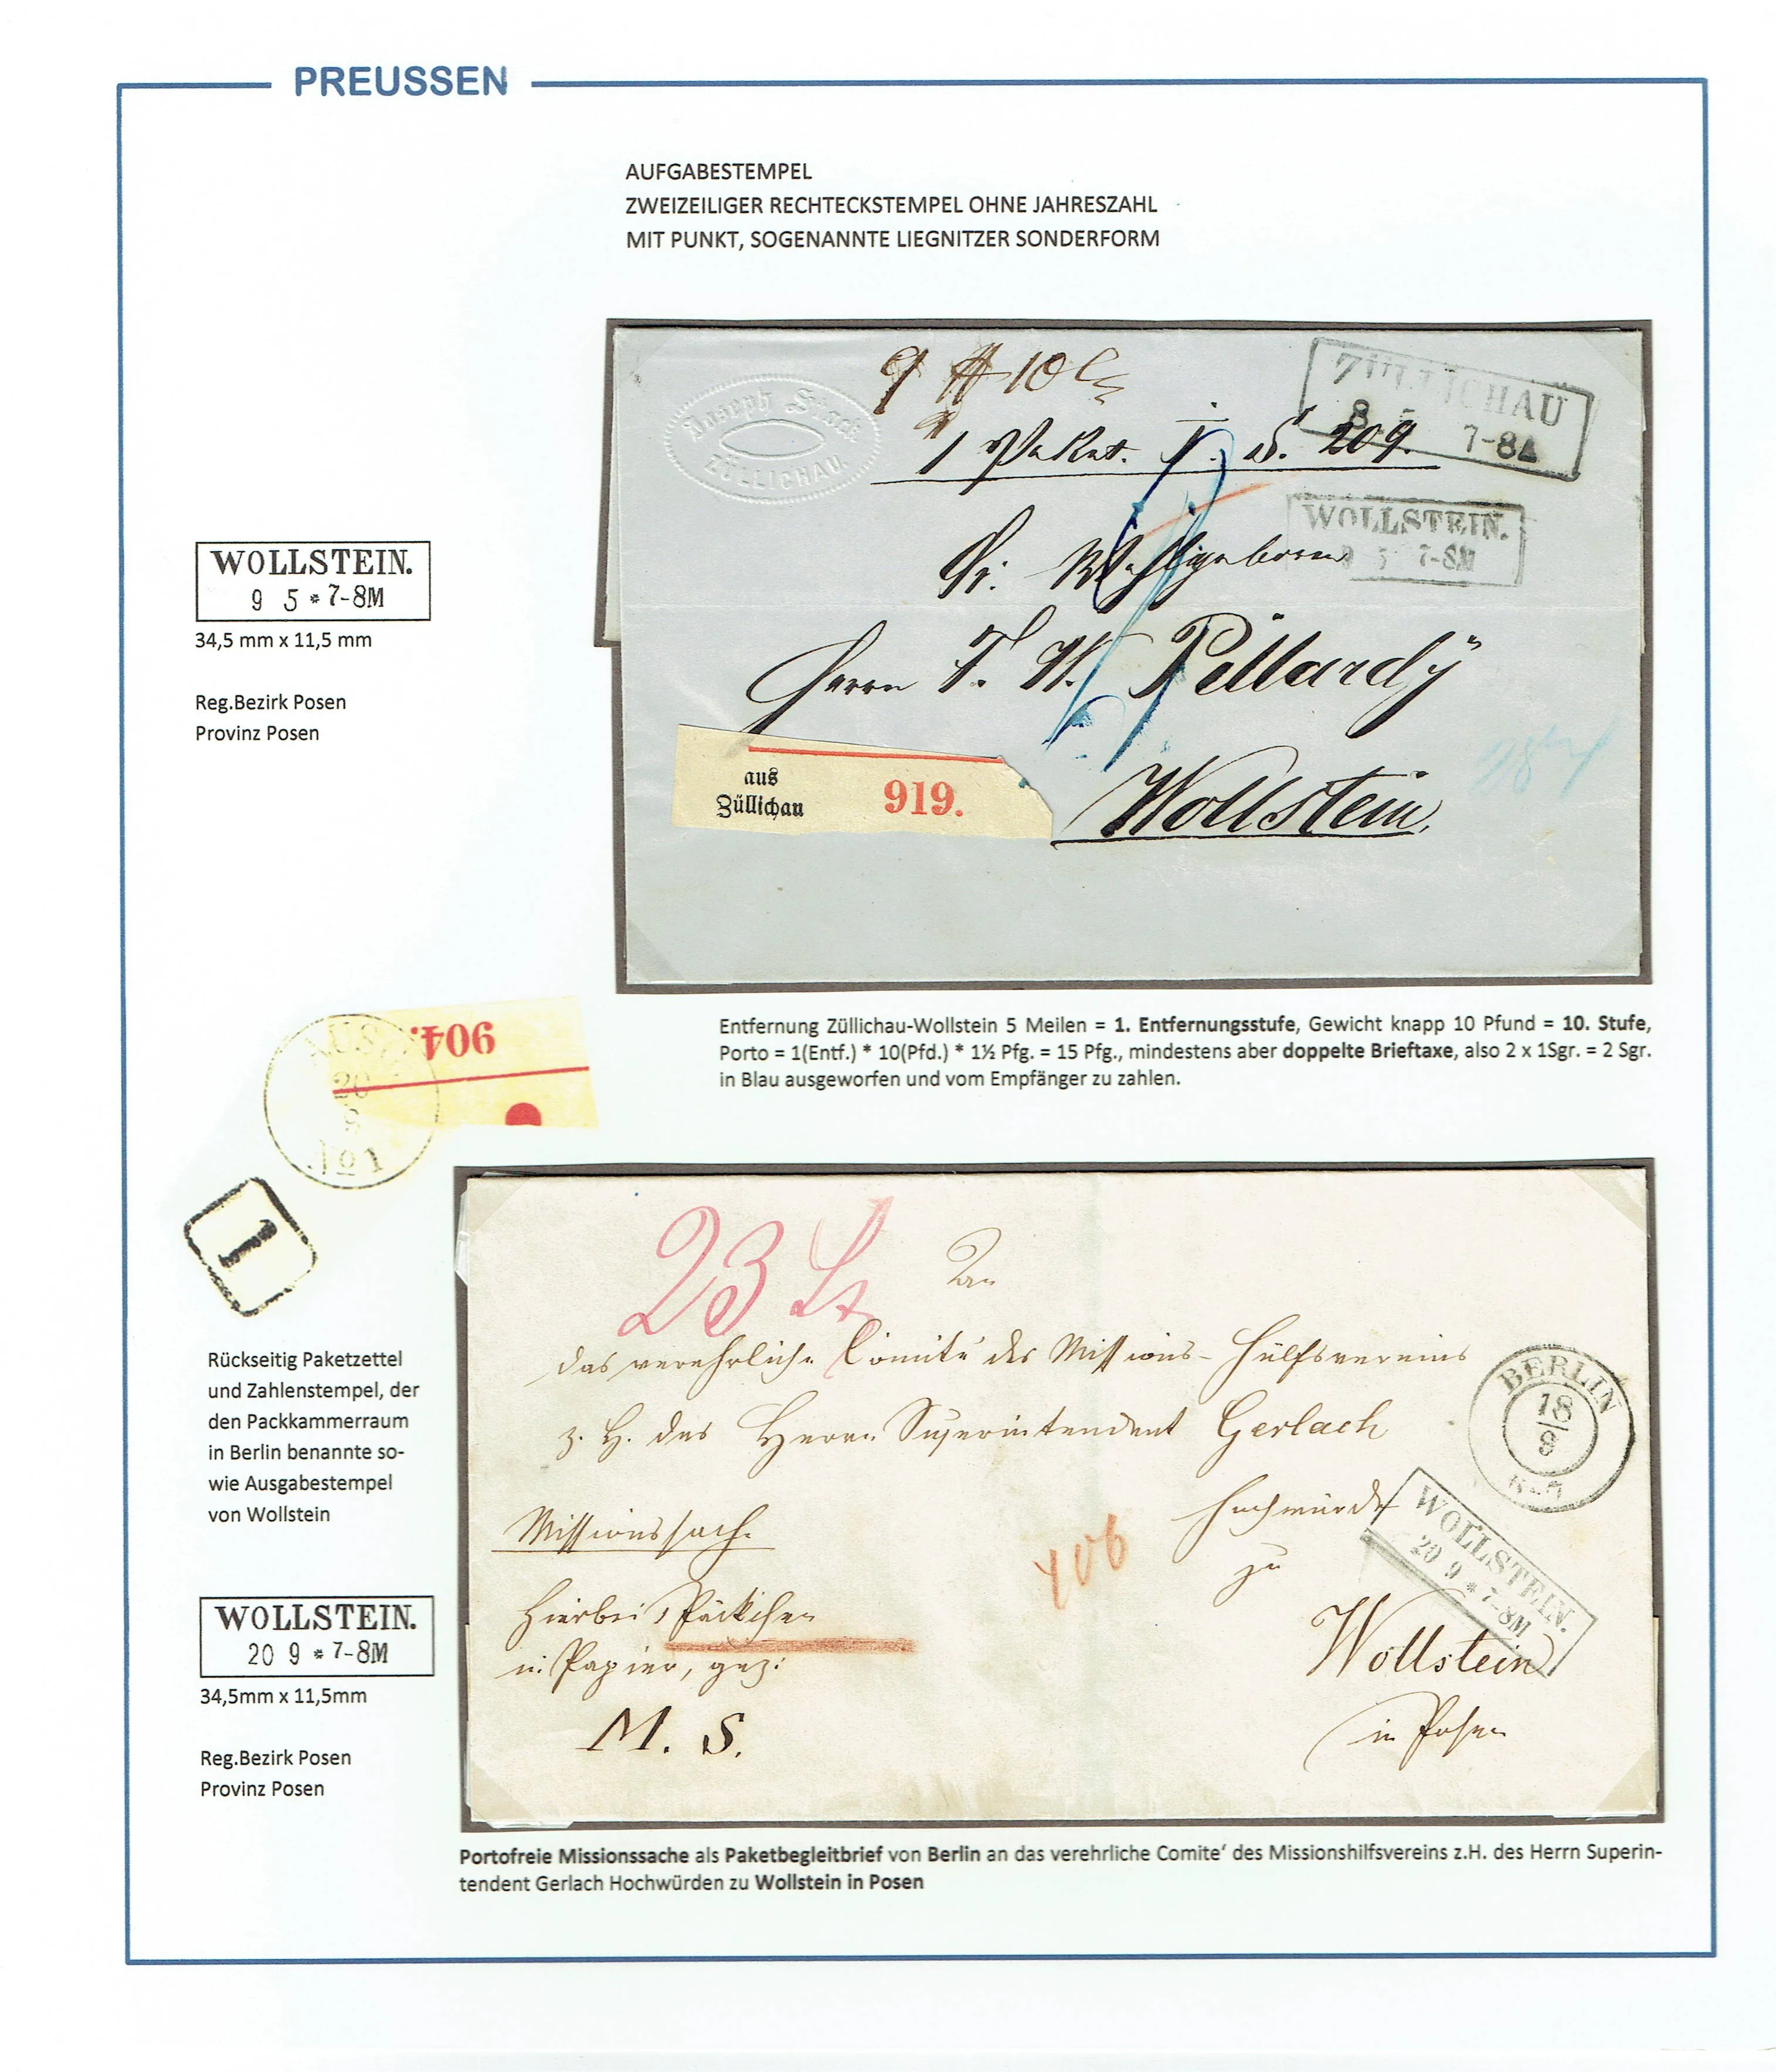 PREUSSEN
AUFGABESTEMPEL
ZWEIZEILIGER RECHTECKSTEMPEL OHNE JAHRESZAHL
MIT PUNKT, SOGENANNTE LIEGNITZER SONDERFORM
Joseph Stack
ZÜLLICHAU
9 10
ZÜLLICHAU
8 5 7-8A
1 Paket. J. S. 209.
WOLLSTEIN.
9 5 7-8M
Sr. Wohlgeboren
Herrn F. W. Pellardy
aus
Züllichau 919.
Wollstein.
WOLLSTEIN.
9 5 * 7-8M
34,5 mm x 11,5 mm
Reg.Bezirk Posen
Provinz Posen
Entfernung Züllichau-Wollstein 5 Meilen = 1. Entfernungsstufe, Gewicht knapp 10 Pfund = 10. Stufe,
Porto = 1(Entf.) * 10(Pfd.) * 1½ Pfg. = 15 Pfg., mindestens aber doppelte Brieftaxe, also 2 x 1Sgr. = 2 Sgr.
in Blau ausgeworfen und vom Empfänger zu zahlen.
904.
AUSG
20
9
No 1
1
Rückseitig Paketzettel
und Zahlenstempel, der
den Packkammerraum
in Berlin benannte so-
wie Ausgabestempel
von Wollstein
WOLLSTEIN.
20 9 * 7-8M
34,5mm x 11,5mm
Reg.Bezirk Posen
Provinz Posen
23 Lt
An
das verehrliche Comité des Missions-Hülfsvereins
z. H. des Herrn Superintendent Gerlach
BERLIN
18
9
Hochwürden
zu
WOLLSTEIN.
20 9 * 7-8M
Missionssache
Hierbei 1 Päckchen
in Papier, gez:
M. S.
Wollstein
in Posen
Portofreie Missionssache als Paketbegleitbrief von Berlin an das verehrliche Comite‘ des Missionshilfsvereins z.H. des Herrn Superin-
tendent Gerlach Hochwürden zu Wollstein in Posen